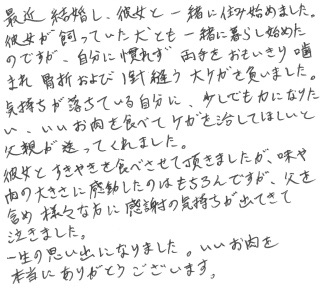 最近 結婚し、彼女と一緒に住み始めました。
彼女が飼っていた犬とも一緒に暮らし始めた
のですが、自分に慣れず 両手をおもいきり噛
まれ 骨折および1針縫う大ケガを負いました。
気持ちが落ちている自分に、少しでも力になりた
い、いいお肉を食べてケガを治してほしいと
父親が送ってくれました。
彼女とすきやきを食べさせて頂きましたが、味や
肉の大きさに感動したのはもちろんですが、父を
含め 様々な方に感謝の気持ちが出てきて
泣きました。
一生の思い出になりました。いいお肉を
本当にありがとうございます。